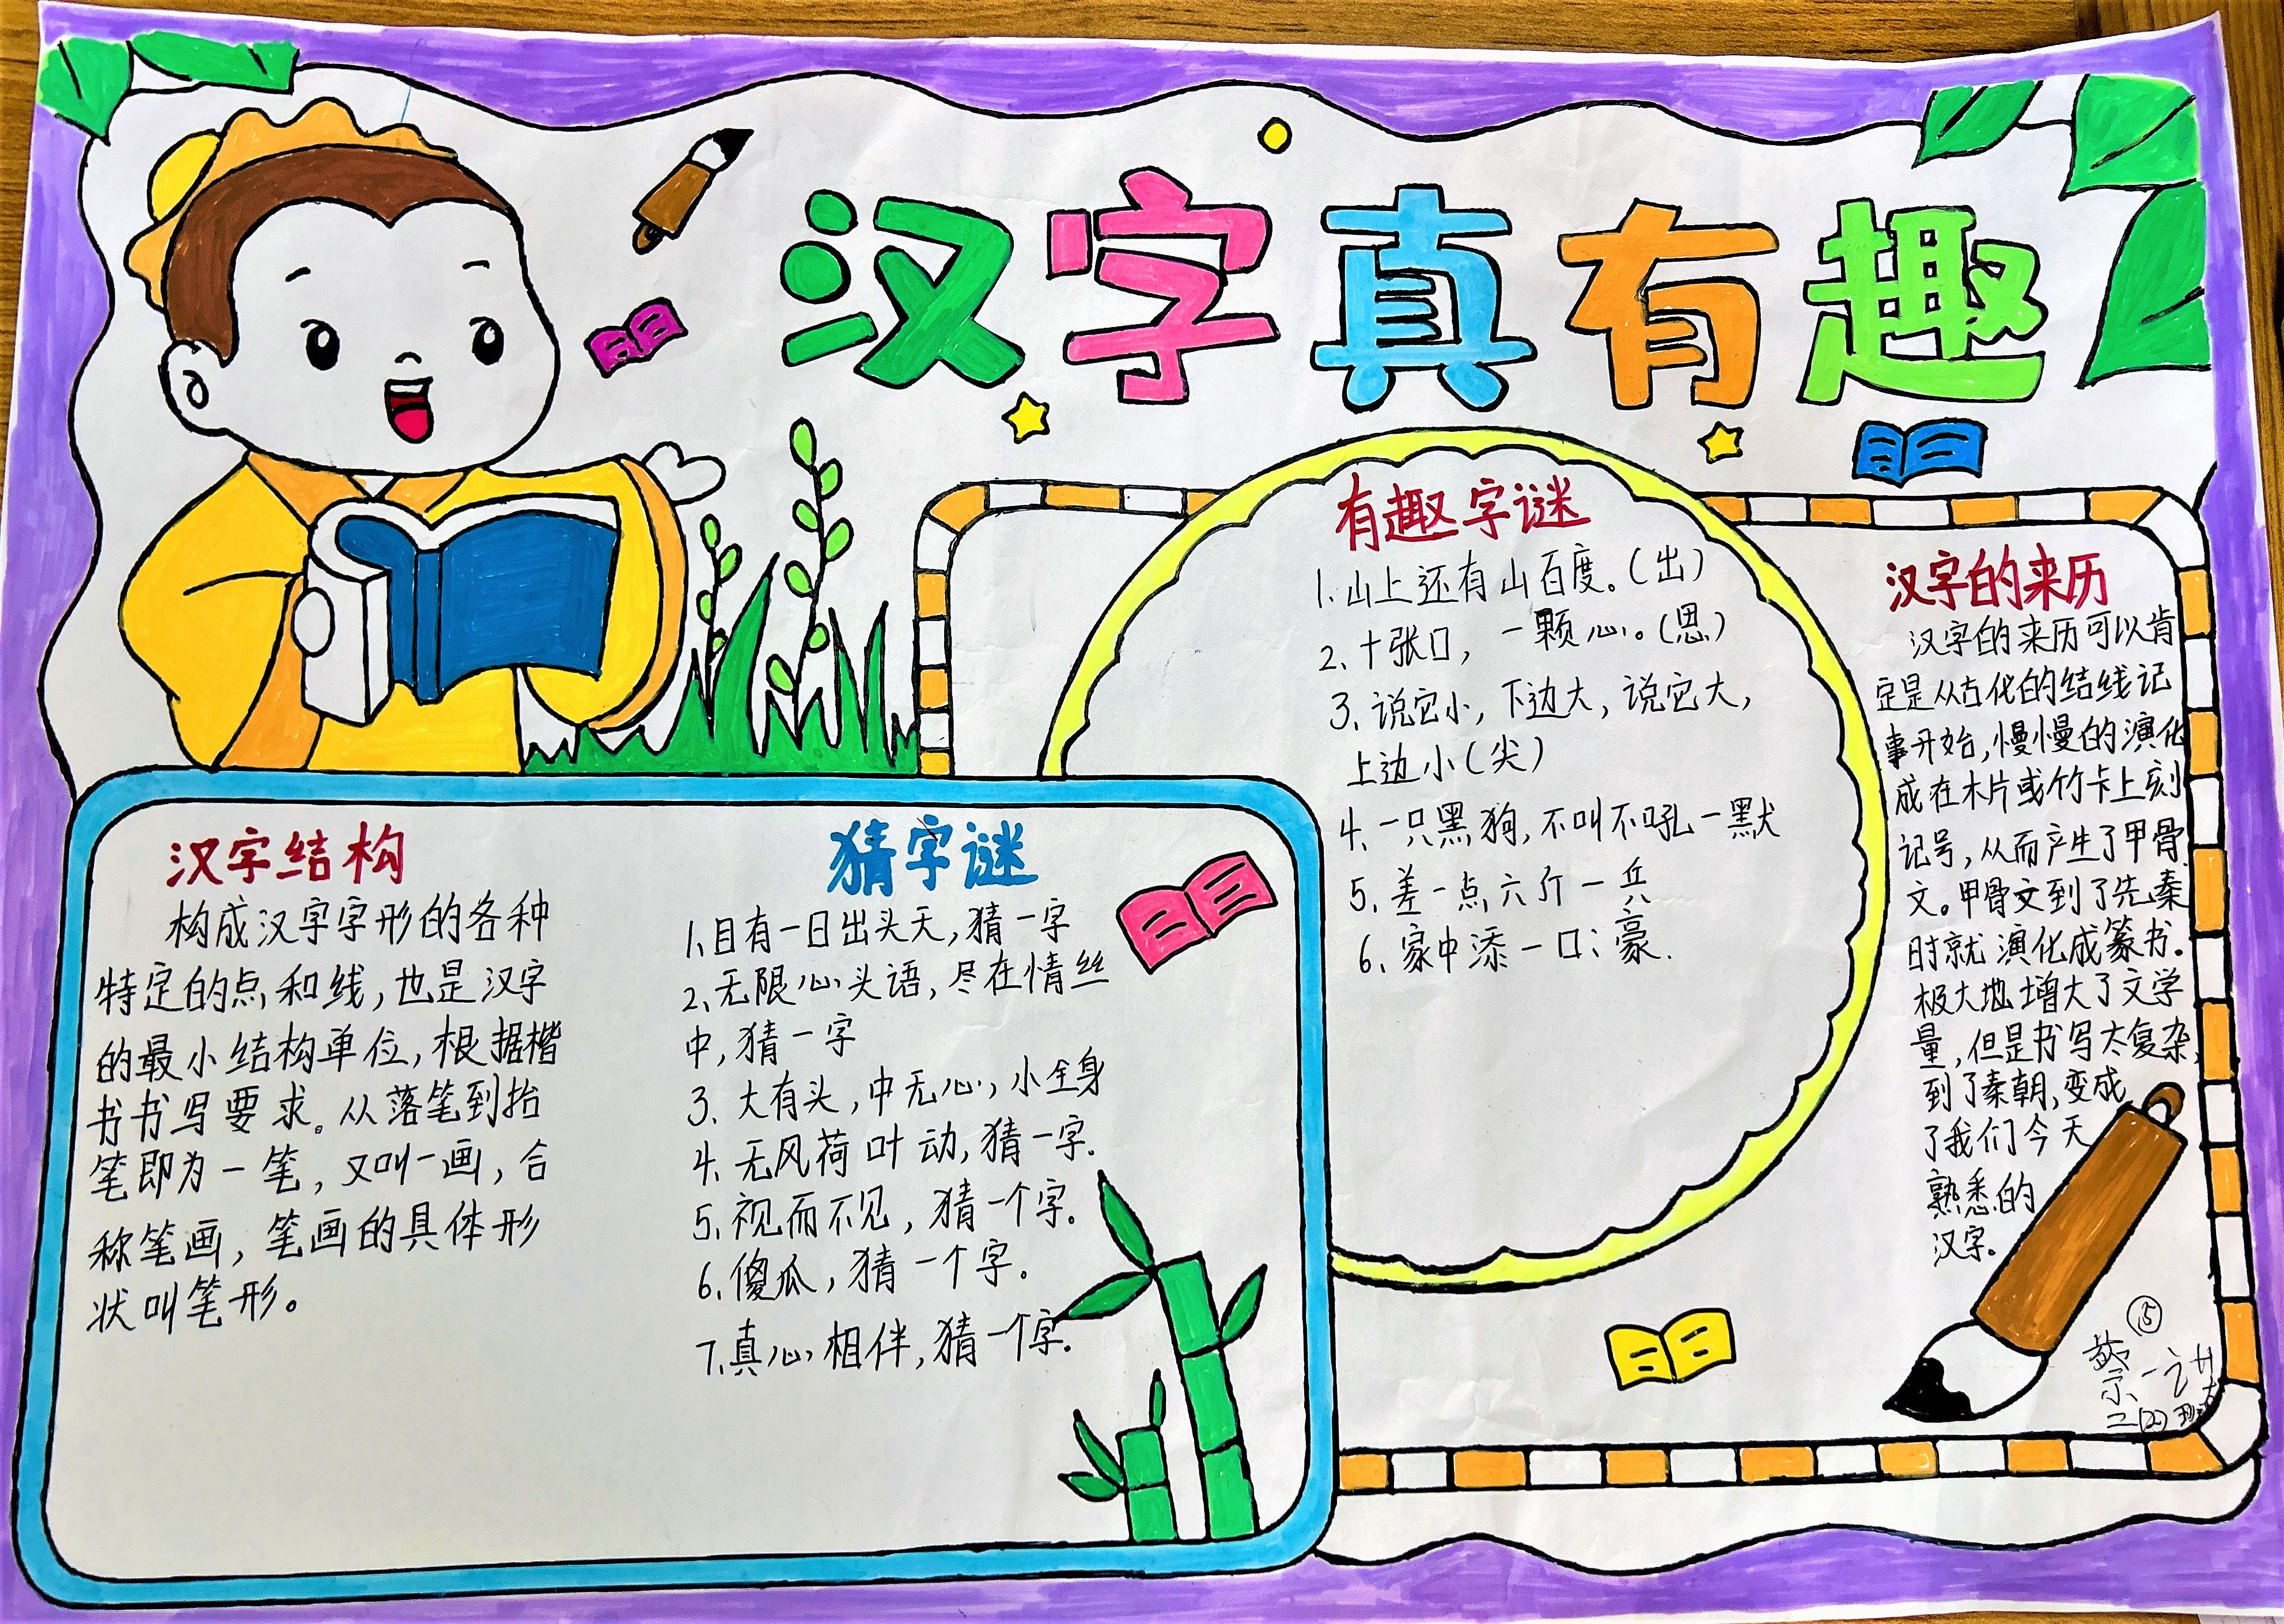 汉字真有趣
有趣字谜
1、山上还有山百度。(出)
2、十张口, 一颗心。(思)
3、说它小, 下边大, 说它大,
上边小(尖)
4、一只黑狗, 不叫不吼一默
5、差一点六斤一兵
6、家中添一口; 豪.
汉字的来历
汉字的来历可以肯
定是从古代的结线记
事开始, 慢慢的演化
成在木片或竹卡上刻
记号, 从而产生了甲骨
文。甲骨文到了先秦
时就演化成篆书。
极大地增大了文学
量, 但是书写太复杂,
到了秦朝, 变成
了我们今天
熟悉的
汉字。
汉字结构
构成汉字字形的各种
特定的点和线, 也是汉字
的最小结构单位, 根据楷
书书写要求。从落笔到抬
笔即为一笔, 又叫一画, 合
称笔画, 笔画的具体形
状叫笔形。
猜字谜
1、目有一日出头天, 猜一字
2、无限心头语, 尽在情丝
中, 猜一字
3、大有头, 中无心, 小全身
4、无风荷叶动, 猜一字.
5、视而不见, 猜一个字。
6、傻瓜, 猜一个字。
7、真心相伴, 猜一个字.
⑤
二(2)班